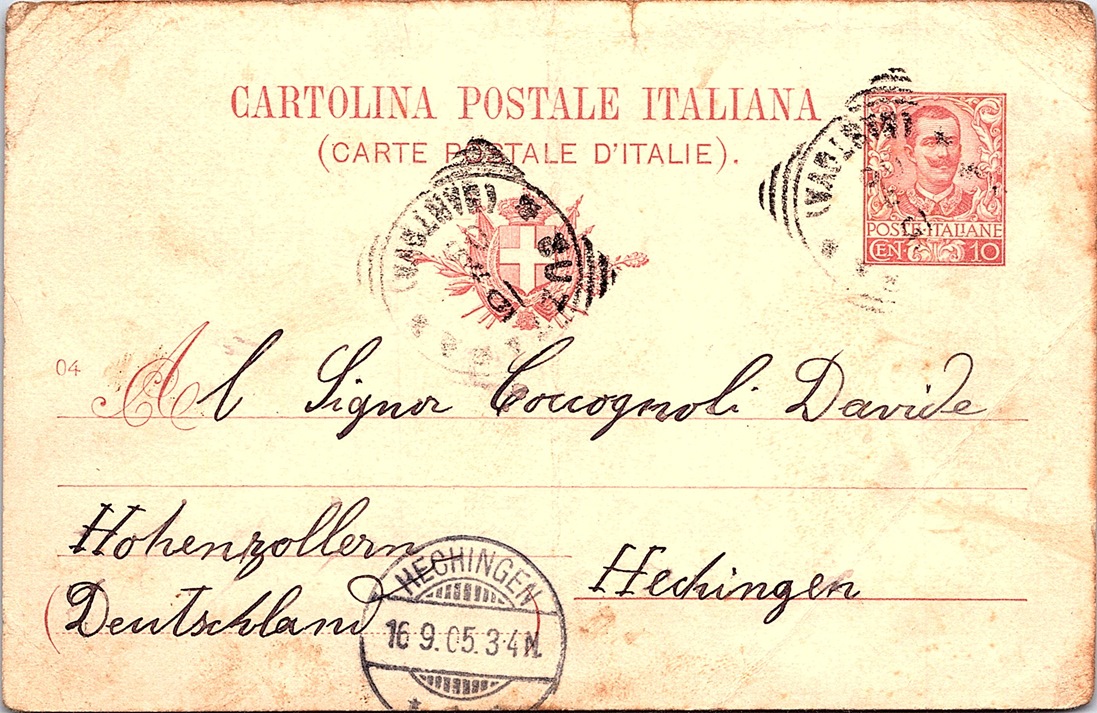 CARTOLINA POSTALE ITALIANA
(CARTE POSTALE D'ITALIE).
POSTE ITALIANE
CEN 10
(MANTOVA)
(MANTOVA)
04
Al Signor Coccognoli Davide
Hohenzollern
(Deutschland)
Hechingen
HECHINGEN
16 9. 05. 3-4 N.